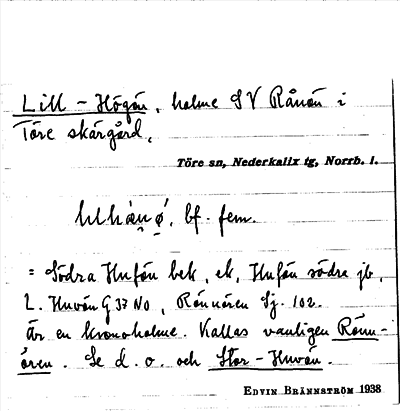 Lill-Högön, holme SV Rånön i
Töre skärgård.
Töre sn, Nederkalix tg, Norrb. l.
bf. fem.
= Södra Hufön bek, ek, Hufön södra jb,
L. Huvön G 37 NO, Rönnören Sj. 102.
Är en kronoholme. Kallas vanligen Rönn-
ören. Se d. o. och Stor-Huvön.
EDVIN BRÄNNSTRÖM 1938